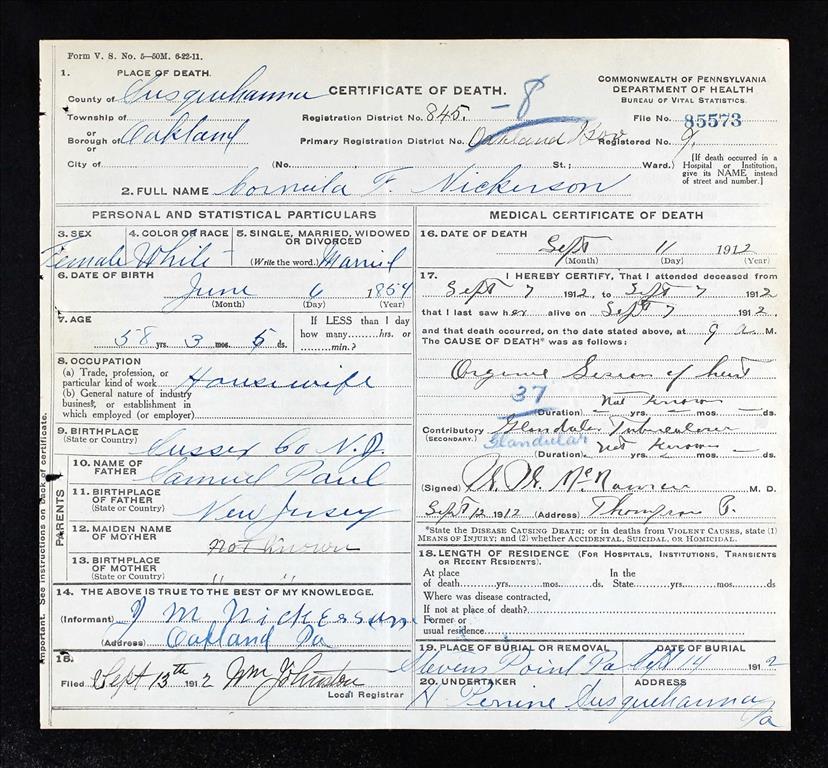 Form V. S. No. 5—50M. 6-22-11.
1. PLACE OF DEATH.
County of Susquehanna
Township of
or
Borough of Oakland
or
City of
CERTIFICATE OF DEATH.
Registration District No. 845. -8
Primary Registration District No. Oakland Boro
(No. St.; Ward.)
COMMONWEALTH OF PENNSYLVANIA
DEPARTMENT OF HEALTH
BUREAU OF VITAL STATISTICS.
File No. 85573
Registered No. 9.
[If death occurred in a Hospital or Institution, give its NAME instead of street and number.]
2. FULL NAME Corneila F. Nickerson
PERSONAL AND STATISTICAL PARTICULARS
3. SEX
Female
4. COLOR OR RACE
White
5. SINGLE, MARRIED, WIDOWED OR DIVORCED
(Write the word.) Married
6. DATE OF BIRTH
June 6 1854
(Month) (Day) (Year)
7. AGE
58 yrs. 3 mos. 5 ds.
If LESS than 1 day
how many hrs. or
min.?
8. OCCUPATION
(a) Trade, profession, or
particular kind of work Housewife
(b) General nature of industry
business, or establishment in
which employed (or employer)
9. BIRTHPLACE
(State or Country) Sussex Co N.J.
PARENTS
10. NAME OF
FATHER Samuel Paul
11. BIRTHPLACE
OF FATHER
(State or Country) New Jersey
12. MAIDEN NAME
OF MOTHER not known
13. BIRTHPLACE
OF MOTHER
(State or Country) " "
14. THE ABOVE IS TRUE TO THE BEST OF MY KNOWLEDGE.
(Informant) J M Nickerson
(Address) Oakland Pa
15.
Filed Sept 13th 1912 Wm Johnston
Local Registrar
Important. See instructions on back of certificate.
MEDICAL CERTIFICATE OF DEATH
16. DATE OF DEATH
Sept 11 1912
(Month) (Day) (Year)
17. I HEREBY CERTIFY, That I attended deceased from
Sept 7 1912, to Sept 7 1912
that I last saw her alive on Sept 7 1912.
and that death occurred, on the date stated above, at 9 a M.
The CAUSE OF DEATH* was as follows:
Organic Lesion of heart
37 not known
(Duration) — yrs. — mos. — ds.
Contributory Glandular Tuberculosis
(SECONDARY.) Glandular not known
(Duration) yrs. — mos. — ds.
(Signed) M. D.
Sept 12 1912 (Address) Thompson
*State the DISEASE CAUSING DEATH; or in deaths from VIOLENT CAUSES, state (1)
MEANS OF INJURY; and (2) whether ACCIDENTAL, SUICIDAL, OR HOMICIDAL.
18. LENGTH OF RESIDENCE (FOR HOSPITALS, INSTITUTIONS, TRANSIENTS
OR RECENT RESIDENTS).
At place In the
of death yrs. mos. ds. State yrs. mos. ds.
Where was disease contracted,
If not at place of death?
Former or
usual residence
19. PLACE OF BURIAL OR REMOVAL DATE OF BURIAL
Stevens Point Pa Sept 14 1912
20. UNDERTAKER ADDRESS
H Perrine Susquehanna Pa